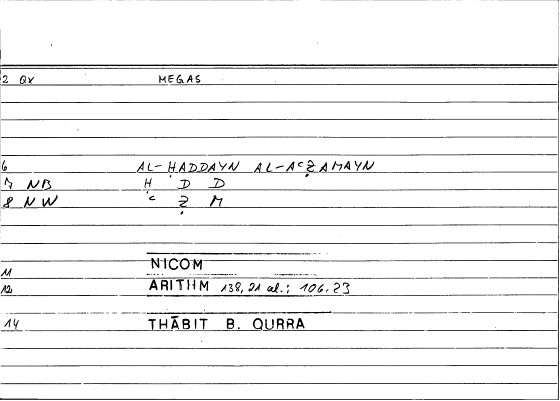 2 QX MEGAS
6 AL-ḤADDAYN AL-AʿẒAMAYN
7 NB Ḥ D D
8 NW ʿ Ẓ M
11 NICOM
12 ARITHM 138,21 al.; 106.23
14 THĀBIT B. QURRA